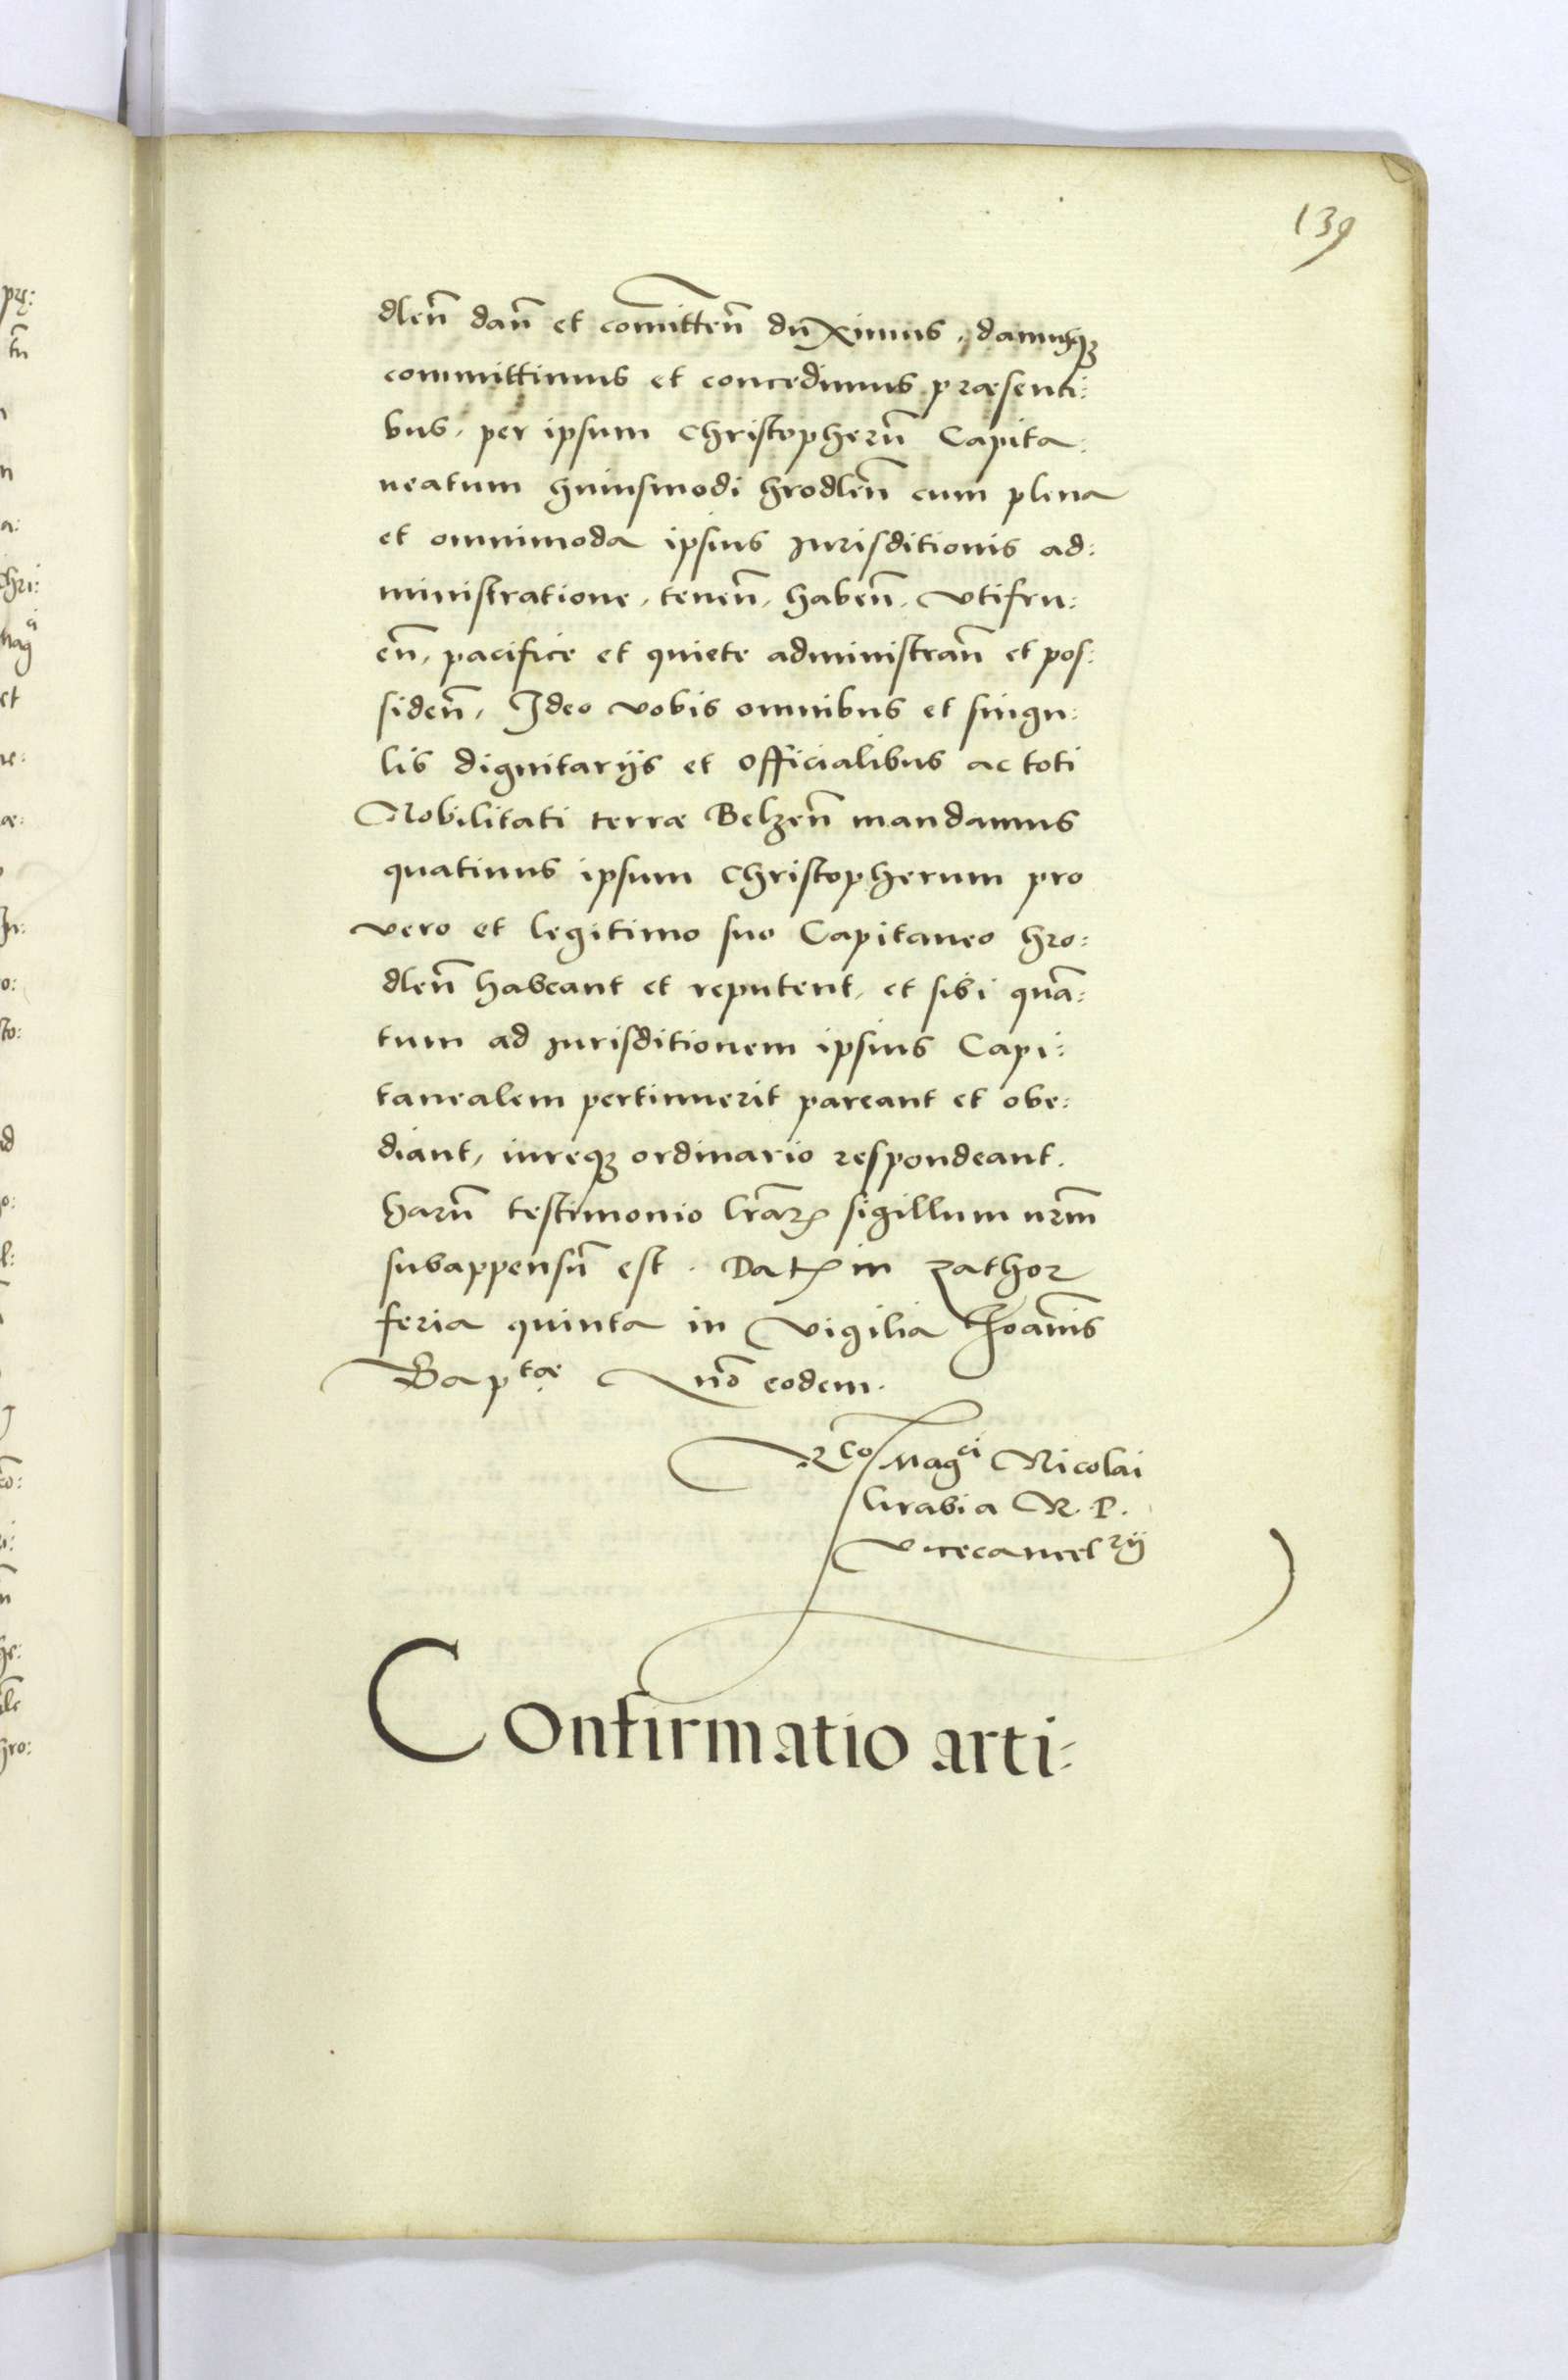 139
dlen̄ dan̄ et com̄itten̄ duximus, damusq́ꝫ
committimus et concedimus præsenti:
bus, per ipsum Christopherū Capita:
neatum huiusmodi hrodlen̄ cum plena
et omnimoda ipsius Jurisditionis ad:
ministratione, tenen̄, haben̄, vtifru:
en̄, pacifice et quiete administran̄ et pos:
siden̄, Ideo vobis omnibus et singu:
lis dignitarijs et officialibus ac toti
Nobilitati terræ Belzen̄ mandamus
quatinus ipsum Christopherum pro
vero et legitimo suo Capitaneo hro:
dlen̄ habeant et reputent, et sibi quā:
tum ad Jurisditionem ipsius Capi:
tanealem pertinuerit pareant et obe:
diant, iureqꝫ ordinario respondeant.
harū testimonio lrāꝝ sigillum nrm̄
subappensū est. Datꝫ in Zathor
feria quinta in Vigilia Joannis
Baptæ Anō eodem.
Rco Magci Nicolai
Grabia R. P.
Vicecancelrij
Confirmatio arti:
prę:
tn̄
n
n
a:
Chri:
Magci
et
ne:
æ:
In:
o:
sto:
ad
o:
l:
cō:
i:
n
he:
ale
hro: